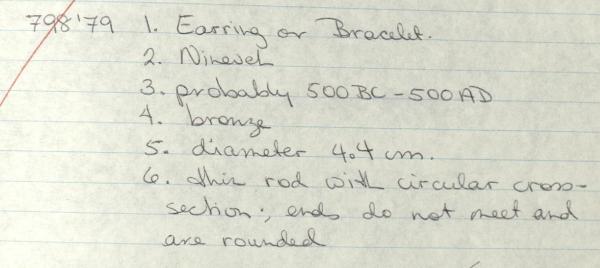 798'79 1. Earring or Bracelet.
2. Nineveh
3. probably 500 BC - 500 AD
4. bronze
5. diameter 4.4 cm.
6. thin rod with circular cross-
section; ends do not meet and
are rounded